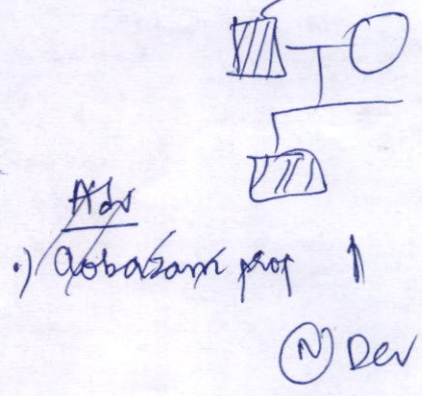 Adv
•) Clobazam prop ↑
(N) Dev